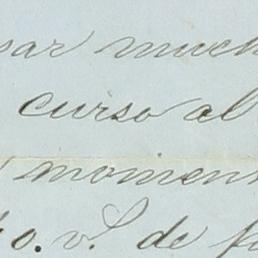 sar much
curso al
momen
o. v. de